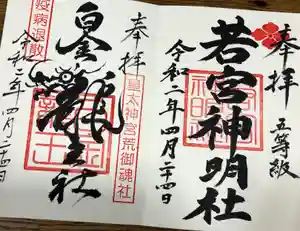 奉拝
五等級
若宮神明社
令和二年四月二十四日
奉拝
皇太神宮荒御魂社
龍王社
疫病退散
令和二年四月二十四日